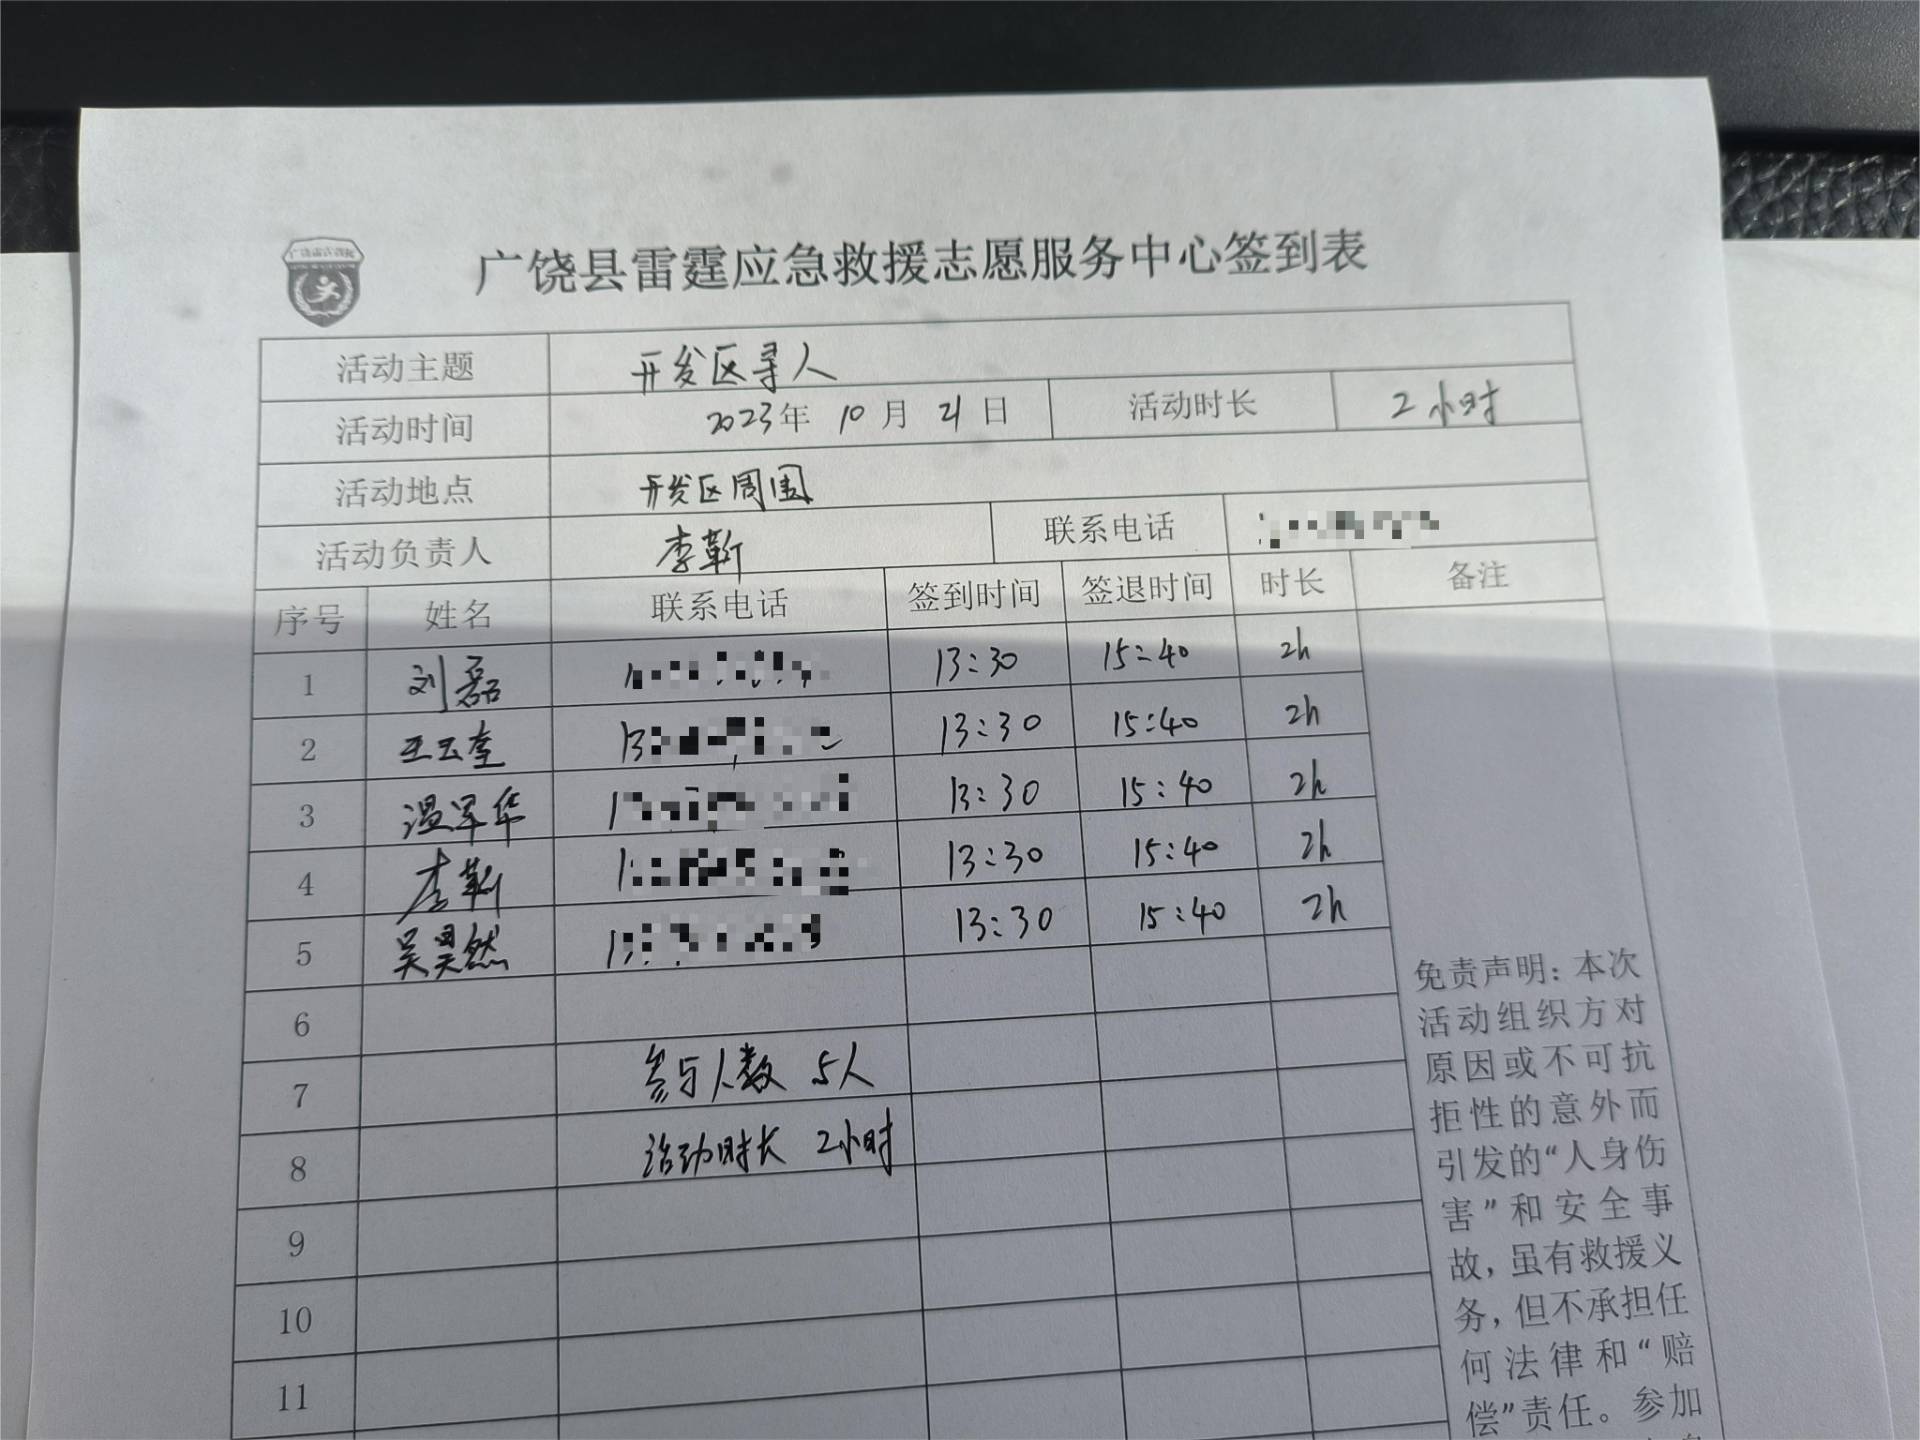 广饶县雷霆应急救援志愿服务中心签到表
活动主题 开发区寻人
活动时间 2023年 10月 21日 活动时长 2小时
活动地点 开发区周围
活动负责人 李靳 联系电话
序号 姓名 联系电话 签到时间 签退时间 时长 备注
1 刘磊 13:30 15:40 2h
2 王云奎 13:30 15:40 2h
3 温军华 13:30 15:40 2h
4 李靳 13:30 15:40 2h
5 吴昊然 13:30 15:40 2h
6
7 参与人数 5人
8 活动时长 2小时
9
10
11
免责声明：本次
活动组织方对
原因或不可抗
拒性的意外而
引发的“人身伤
害”和安全事
故，虽有救援义
务，但不承担任
何法律和“赔
偿”责任。参加